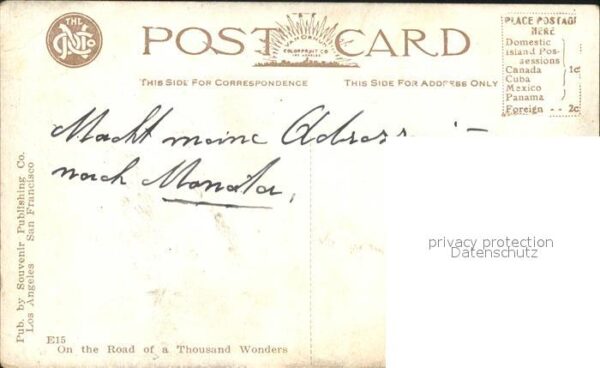 THE
POST CARD
VAN ORNUM
COLORPRINT CO
LOS ANGELES
PLACE POSTAGE
HERE
Domestic
Island Pos-
sessions
Canada 1c
Cuba
Mexico
Panama
Foreign - - 2c
THIS SIDE FOR CORRESPONDENCE THIS SIDE FOR ADDRESS ONLY
Macht meine
nach Manila,
privacy protection
Datenschutz
Pub. by Souvenir Publishing Co.
Los Angeles San Francisco
E15
On the Road of a Thousand Wonders